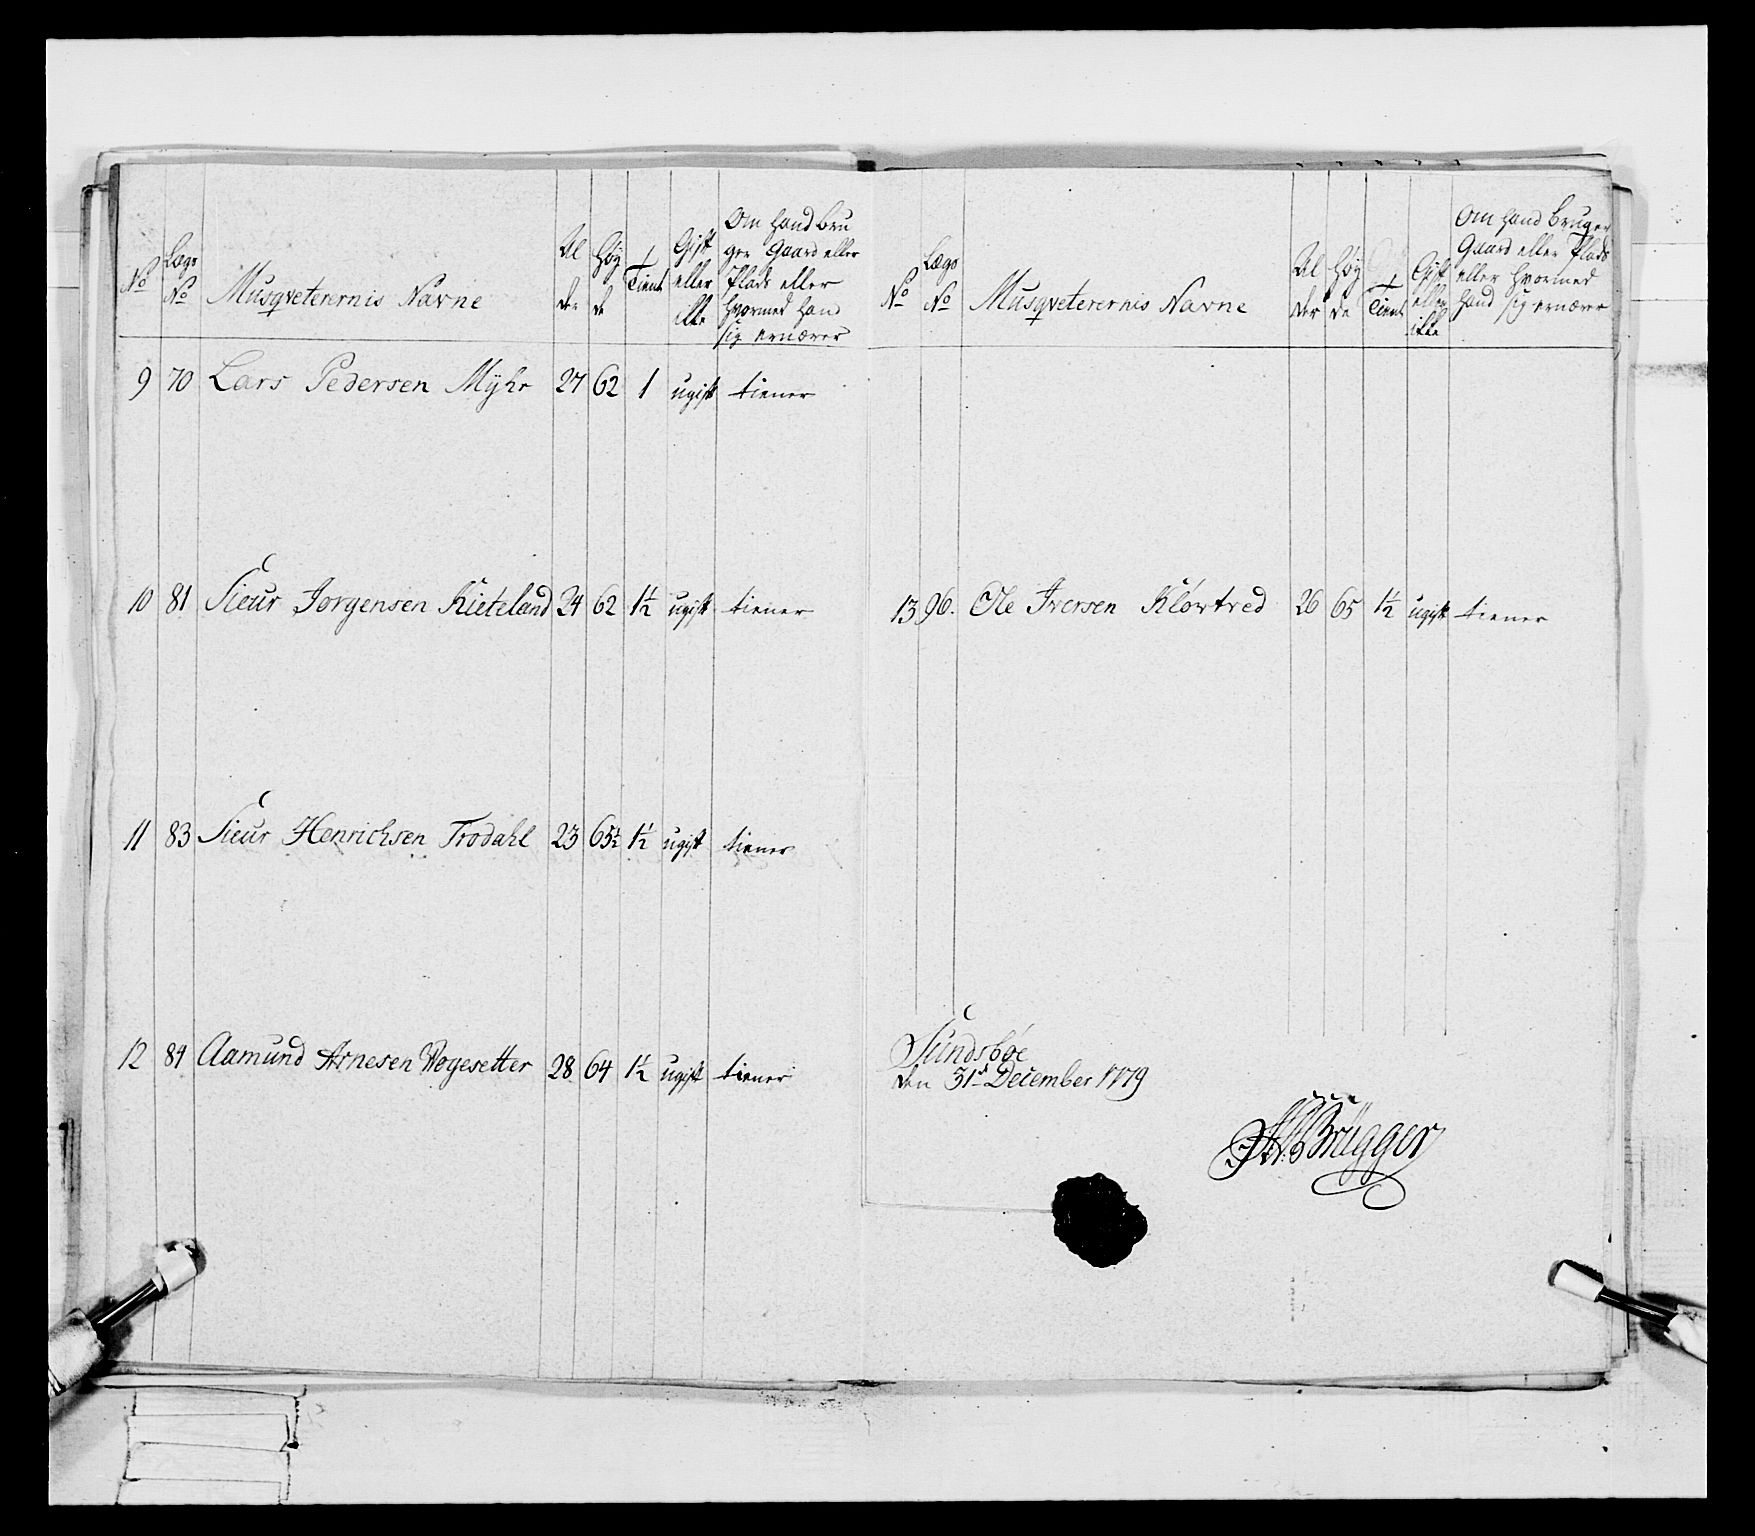 No
Lægs No
Musqveterernis Navne
Al der
Høy de
Tient
Gift eller ikke
Om hand bru
ger Gaard eller
Plads eller
hvormed hand
sig ernærer
9 70 Lars Pedersen Myhr 27 62 1 ugift tiener
10 81 Sieur Jørgensen Kieteland 24 62 1½ ugift tiener
11 83 Sieur Henrichsen Trodahl 23 65½ 1½ ugift tiener
12 84 Aamund Arnesen Rogesetter 28 64 1½ ugift tiener
No
Lægs No
Musqveterernis Navne
Al der
Høy de
Tient
Gift eller ikke
Om hand bruger
Gaard eller Plads
eller hvormed
hand sig ernærer
13 96. Ole Iversen Kløvtred 26 65 1½ ugift tiener
Sundsbøe
den 31d December 1779
Brügger